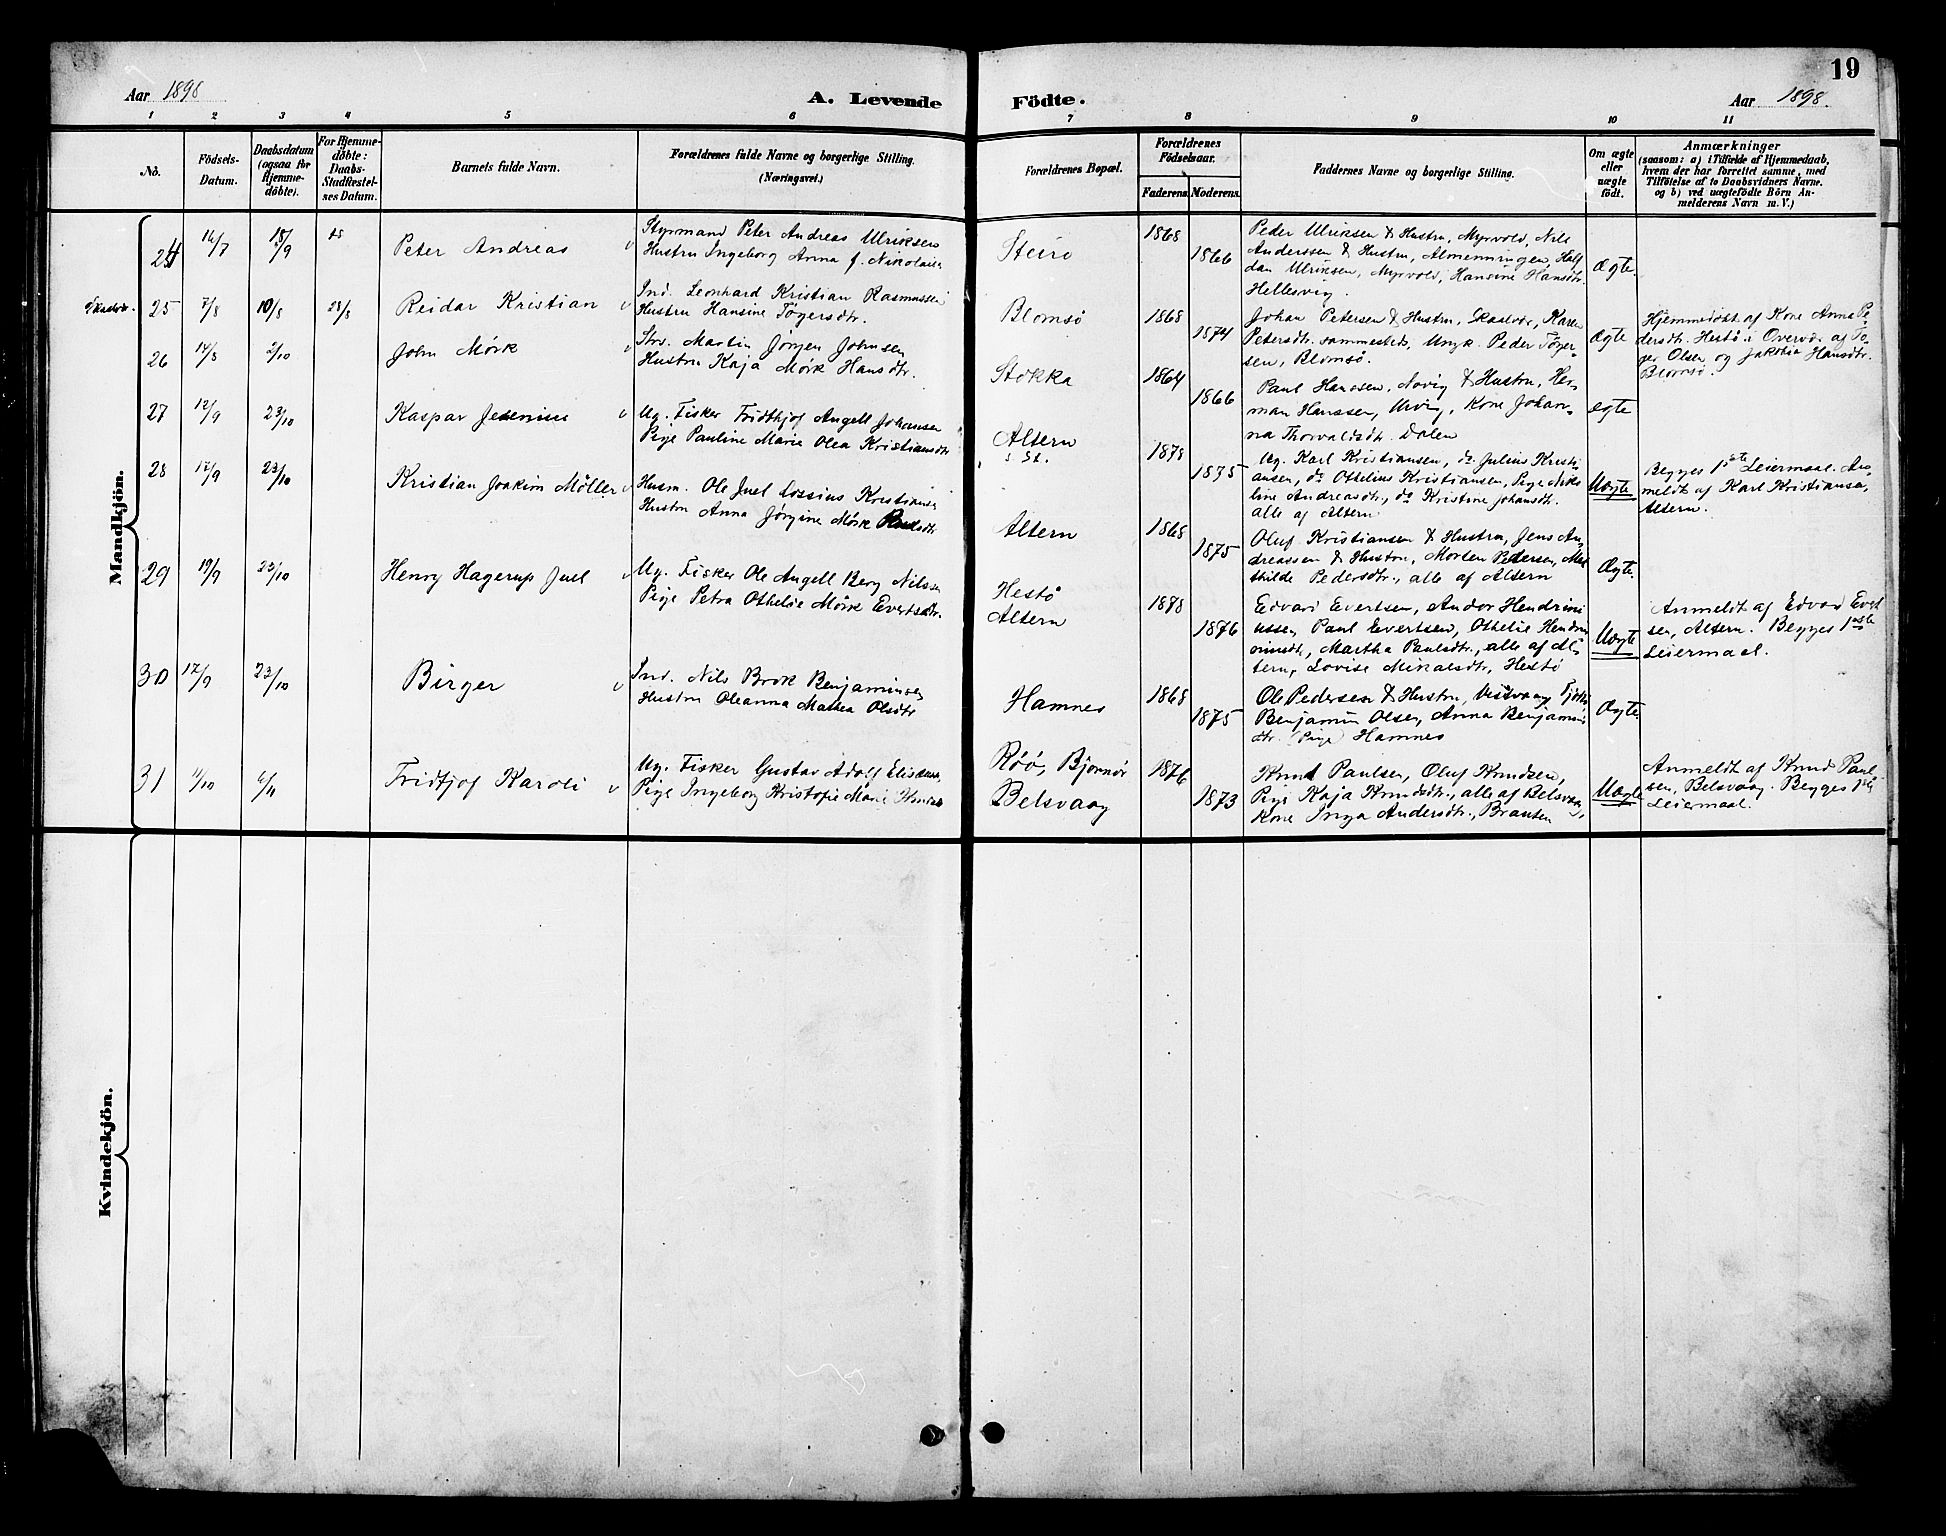 19
Aar 1898
A. Levende Födte.
Aar 1898.
1 2 3 4 5 6 7 8 9 10 11
No.
Födsels-
Datum.
Daabsdatum
(ogsaa for
Hjemme-
döbte).
For Hjemme-
döbte:
Daabs-
Stadfæstel-
ses Datum.
Barnets fulde Navn.
Forældrenes fulde Navne og borgerlige Stilling.
(Næringsvei.)
Forældrenes Bopæl.
Forældrenes
Födselsaar.
Faderens. Moderens.
Faddernes Navne og borgerlige Stilling.
Om ægte
eller
uægte
født.
Anmærkninger
(saasom: a) i Tilfælde af Hjemmedaab,
hvem der har forrettet samme, med
Tilföielse af to Daabsvidners Navne.
og b) ved uægtefödte Börn An-
melderens Navn m. V.)
Mandkjön.
24 16/7 18/9
Peter Andreas
Styrmand Peter Andreas Ulriksen
Hustru Ingeborg Anna f. Nikolaisen
Steiro
1868
1866
Peder Ulriksen & Hustru, Myrvold, Nils
Anderssen & Hustru, Almenningen, Half
dan Ulriksen, Myrvold, Hansine Hansdtr.
Hellesvig.
Ægte
25 7/8 10/8 28/8
Reidar Kristian
Ind. Leonhard Kristian Rasmussen
Hustru Hansine Tøgersdtr.
Blomsø
1868
1874
Johan Petersen & Hustru, Skaalvær, Karen
Petersdtr. sammesteds, Ungk. Peder Tøger-
sen, Blomsø.
Ægte
Hjemmedøbt af Kone Anna Pe-
dersdtr. Hestø i Overvær af Tø-
ger Olsen og Jakobia Hansdtr.
Blomsø.
26 14/8 2/10
John Mørk
Strs. Martin Jørgen Johnsen
Hustru Kaja Mørk Hansdtr.
Stokka
1864
1866
Paul Hanssen, Novig & Hustru, Her-
man Hanssen, Urvig, Kone Johan-
na Thorvaldsdtr. Dalen
Ægte
27 12/9 23/10
Kaspar Jessenius
Ug. Fisker Fridthjof Angell Johansen
Pige Pauline Marie Olea Kristiansdtr
Altern
s. St.
1878
1875
Ug. Karl Kristiansen, do Julius Kristi-
ansen, do Othelius Kristiansen, Pige Niko
line Andreasdtr., do Kristine Johansdtr.
alle af Altern
Uægte
Begges 1ste Leiermaal. An-
meldt af Karl Kristiansen,
Altern.
28 17/9 23/10
Kristian Joakim Møller
Husm. Ole Juel Lossius Kristiansen
Hustru Anna Jørgine Mørk Paulsdtr
Altern
1868
1875
Oluf Kristiansen & Hustru, Jens An-
dreassen & Hustru, Morten Pedersen, Ma
thilde Pedersdtr., alle af Altern
Ægte.
29 19/9 23/10
Henry Hagerup Juel
Ug. Fisker Ole Angell Berg Nilssen
Pige Petra Othelie Mørk Evertsdtr.
Hestø
Altern
1878
1876
Edvard Evertsen, Andor Hendrini
ussen, Paul Evertsen, Othelie Hendri
niusdtr, Martha Paulsdtr., alle af Al-
tern, Lovise Mikalsdtr, Hestø
Uægte
Anmeldt af Edvard Evert
sen, Altern. Begges 1ste
Leiermaal.
30 17/9 23/10
Birger
Ind. Nils Brok Benjaminsen
Hustru Oleanna Mathea Olsdtr
Hamnes
1868
1875
Ole Pedersen & Hustru, Visivaag,
Benjamin Olsen, Anna Benjamins
dtr. (Pige) Hamnes
Ægte
31 11/10 6/11
Fridtjof Karoli
Ug. Fisker Gustav Adolf Eliassen
Pige Ingeborg Kristofie Marie Knudsdtr
Røø, Bjørnør
Belsvaag
1876
1873
Knud Paulsen, Oluf Knudsen,
Pige Kaja Knudsdtr., alle af Belsvaag,
Kone Inga Andersdtr., Brausen
Uægte
Anmeldt af Knud Paul
sen, Belsvaag. Begges 1ste
Leiermaal.
Kvindekjön.